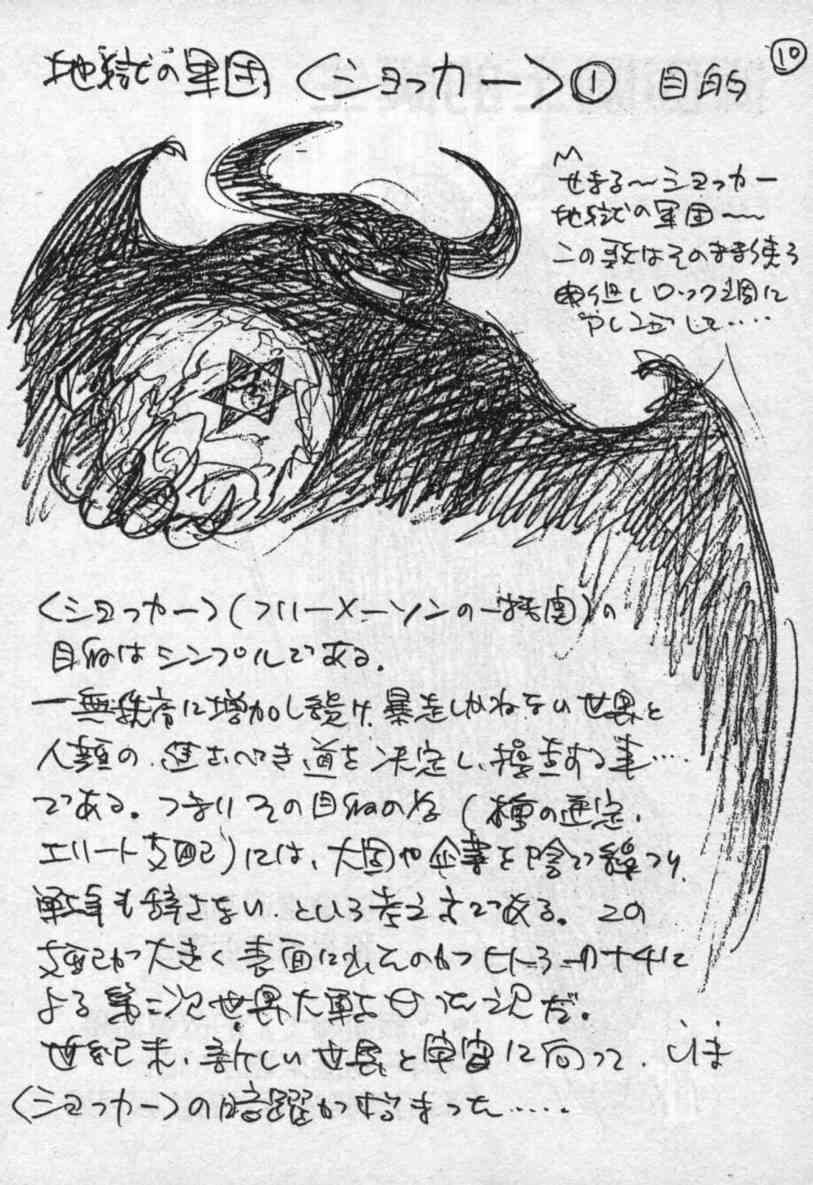 10
地獄の軍団〈ショッカー〉① 目的
せまる〜ショッカー
地獄の軍団〜
この歌はそのまま使う
但しロック調に
〈ショッカー〉(フリーメーソンの一 )の
目的はシンプルである。
一無秩序に増加し続け、暴走しかねない世界と
人類の、進むべき道を決定し、操 する事…
である。つまりその目的の (種の選定、
エリート支配)には、大国や企業を陰で操つり、
戦争も辞さない、という考え方である。この
支配が大きく表面に出たのがヒトラーのナチに
よる第二次世界大戦 だ。
世紀末、新しい世界と宇宙に向って、いま
〈ショッカー〉の暗躍が始まった……